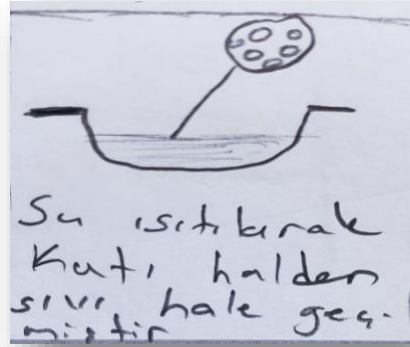 Su ısıtılarak
Katı halden
sıvı hale geç-
miştir